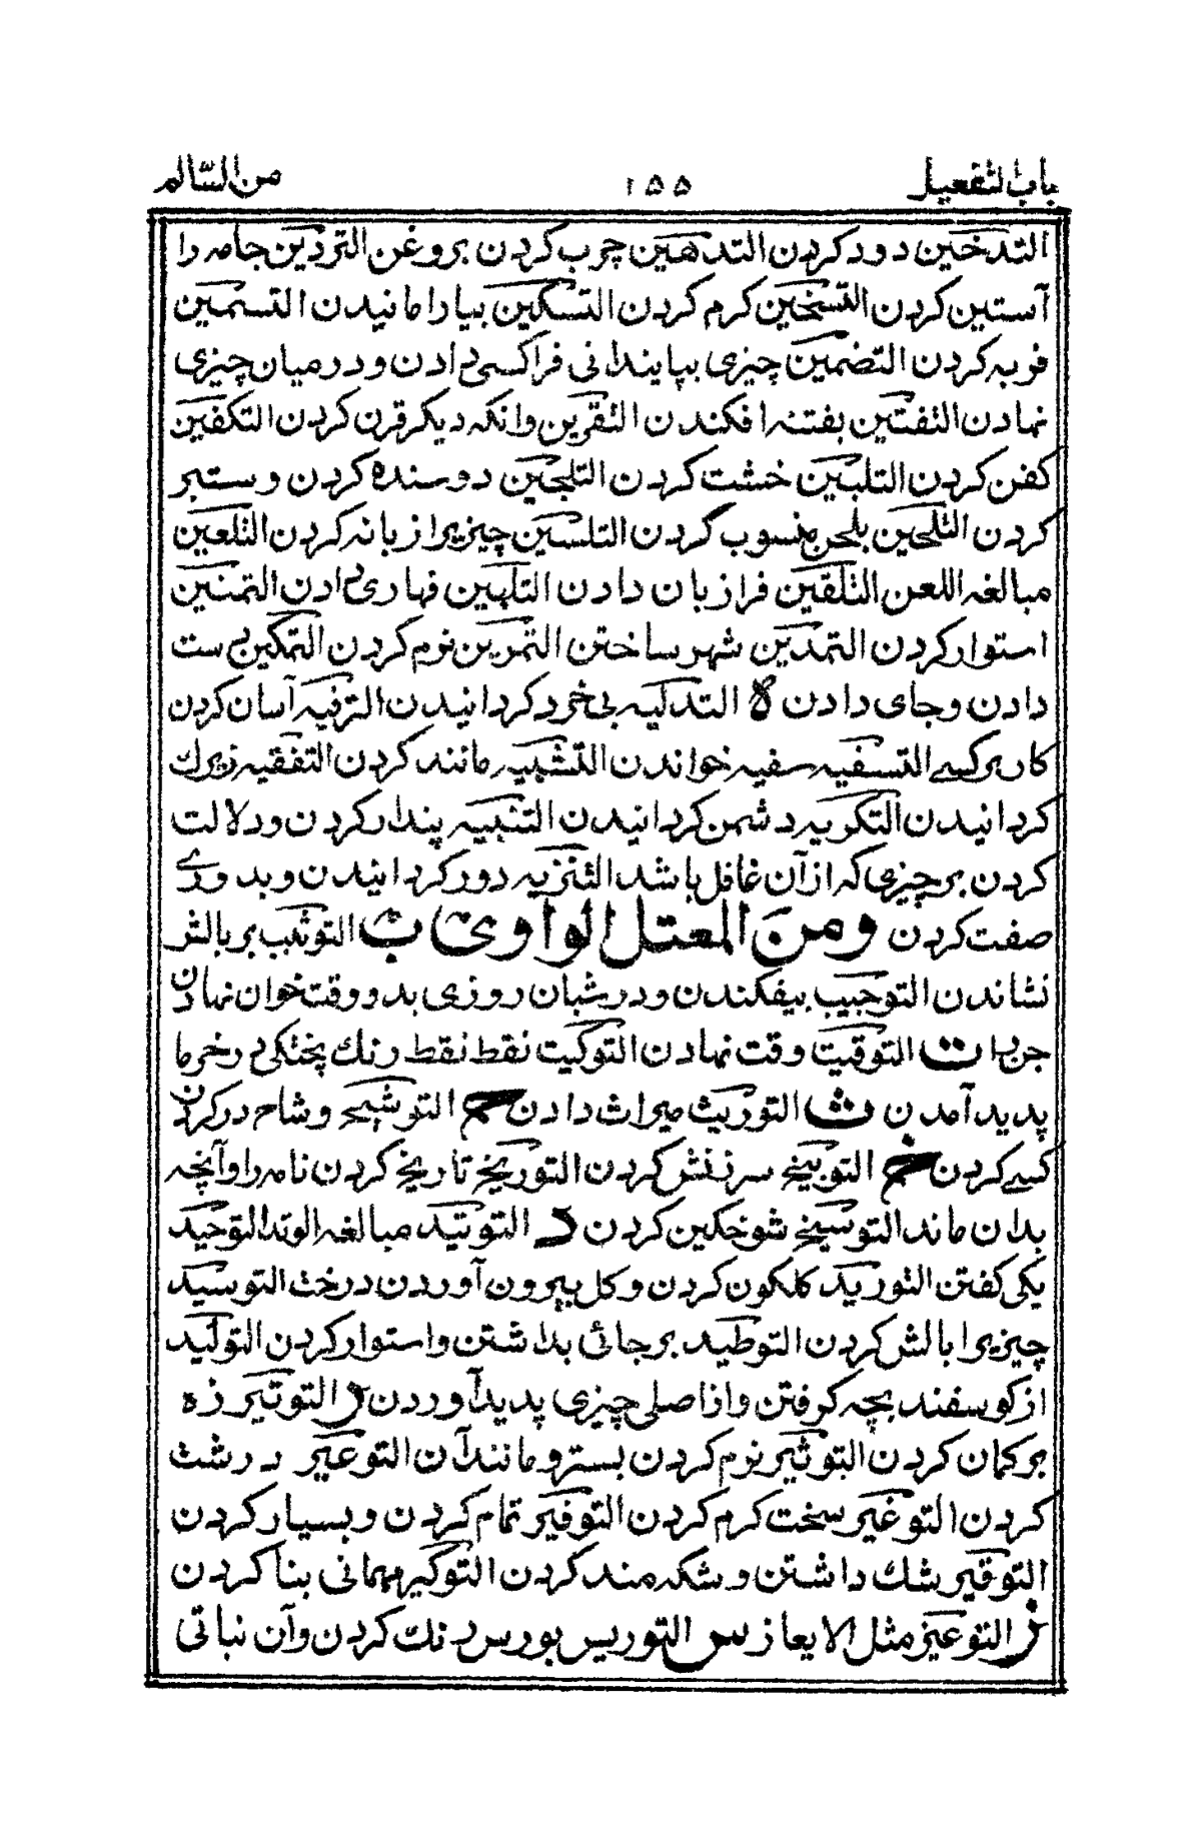 باب التفعیل ۱۵۵ من السّالم
التدخین دود کردن التدهین چرب کردن بروغن التردین جامه را
آستین کردن التسخین کرم کردن التسکین بیارامانیدن التسمین
فربه کردن التضمین چیزی بپایندانی فراکسی دادن ودرمیان چیزی
نهادن التفتین بفتنه افکندن التقرین وانکه دیکر قرن کردن التکفین
کفن کردن التلبین خشت کردن التلجین دوسنده کردن وستبر
کردن التلحین بلحن منسوب کردن التلسین چیزیرا زبانه کردن التلعین
مبالغه اللعن التلقین فرازبان دادن التلهین نهاری دادن التمتین
استوار کردن التمدین شهر ساختن التمرین نرم کردن التمکین دست
دادن وجای دادن ه التدلیه بی خرد کردانیدن الترفیه آسان کردن
کار بر کسے التسفیه سفیه خواندن التشبیه مانند کردن التفقیه زیرك
کردانیدن التکریه دشمن کردانیدن التنبیه پندار کردن ودلالت
کردن بر چیزی که ازآن غافل باشد التنزیه دور کردانیدن وبدورے
صفت کردن ومن المعتل الواوی ب التوثیب بر بالش
نشاندن التوجیب بیفکندن ودرشبان روزی بدو وقت خوان نهادن
جز بها ت التوقیت وقت نهادن التوکیت نقط نقط رنك پختکی در خرما
پدید آمدن ث التوریث میراث دادن ح التوشیح وشاح درکردن
کسے کردن خ التوبیخ سرزنش کردن التوریخ تاریخ کردن نامه را وآنچه
بدان ماند التوسیخ شوخکین کردن د التوتید مبالغه الوتد التوحید
یکی کفتن التورید کلکون کردن وکل بیرون آوردن درخت التوسید
چیزیرا بالش کردن التوطید برجائی بداشتن واستوار کردن التولید
از کوسفند بچه کرفتن وازاصلی چیزی پدید آوردن ر التوتیر زه
بر کمان کردن التوثیر نرم کردن بستر ومانند آن التوعیر درشت
کردن التوغیر سخت کرم کردن التوفیر تمام کردن وبسیار کردن
التوقیر شك داشتن وشکه مند کردن التوکیر مهمانی بنا کردن
ز التوعیز مثل الایعاز س التوریس بورس رنك کردن وآن نباتی